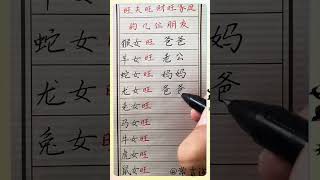 旺夫旺财旺家庭
的几位朋友
猴女旺 爸爸
羊女旺 老公
蛇女旺 妈妈
龙女旺 爸爸
兔女旺
马女旺
牛女旺
虎女旺
鼠女旺
蛇女旺
龙女旺
兔女旺